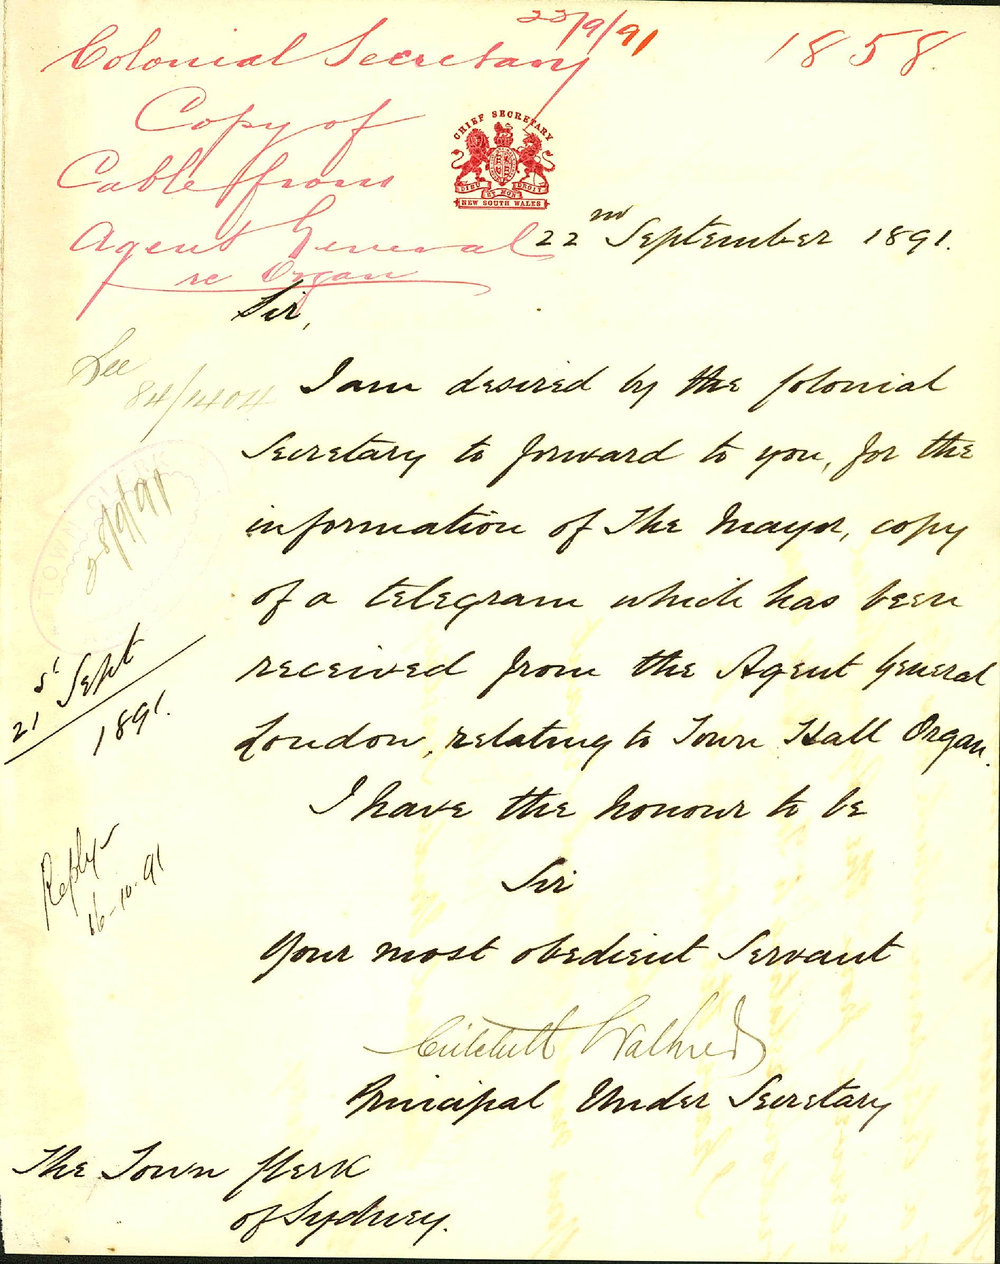 22/9/91
1858.
Colonial Secretary
Copy of
Cable from
Agent General
re Organ
CHIEF SECRETARY
DIEU ET MON DROIT
NEW SOUTH WALES
22nd September 1891.
Sir,
See
84/1404
I am desired by the Colonial
Secretary to forward to you, for the
information of The Mayor, copy
of a telegram which has been
received from the Agent General
London, relating to Town Hall Organ.
TOWN CLERK
28/9/91
21st Sept
1891.
Reply
16-10-91
I have the honour to be
Sir
Your most obedient Servant
Critchett Walker
Principal Under Secretary
The Town Clerk
of Sydney.